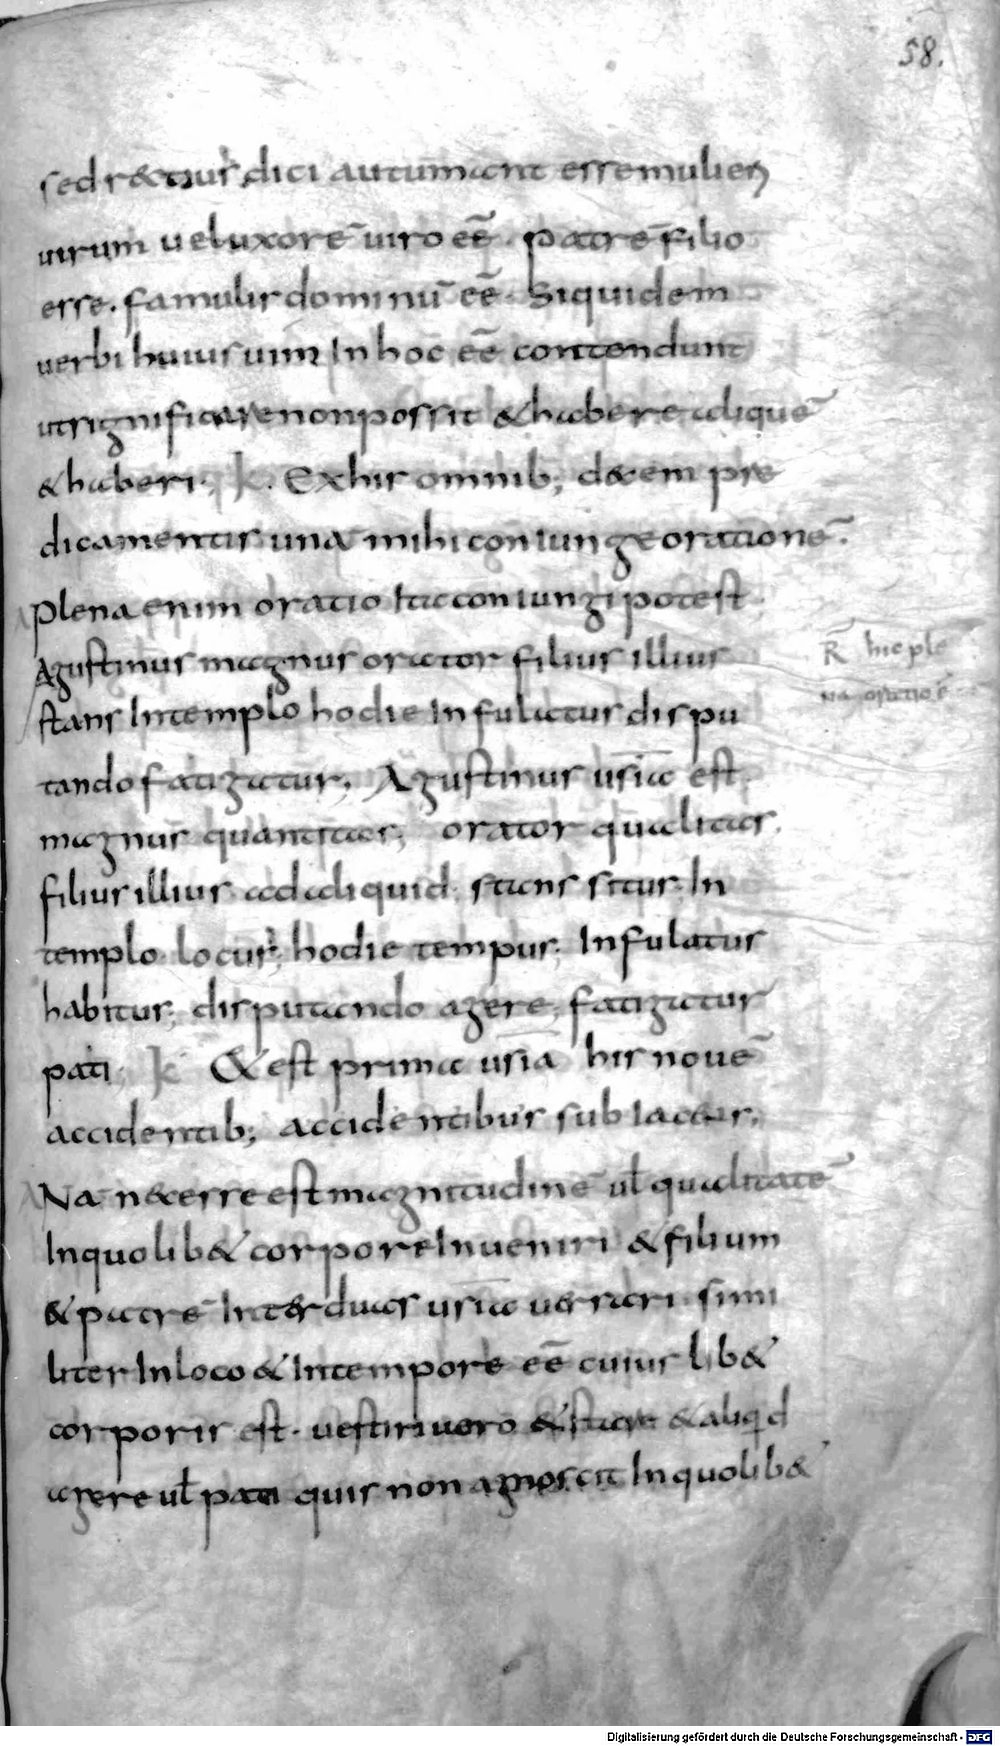 58.
sed r&tius dici autumant esse mulieri
uirum uel uxorē uiro eē. patrē filio
esse. famulis dominū eē. Siquidem
uerbi huius uim In hoc eē contendunt
ut significare non possit & habere aliquē
& haberi; K. Ex his omnib; decem prę
dicamentis unā mihi coniunge orationē.
Plena enim oratio Ita coniungi potest
Agustinus magnus orator filius illius
R hic ple
na oratio ē
stans In templo hodie Infulatus dispu
tando fatigatur; Agustinus usia est
magnus quantitas; orator qualitas,
filius illius ad aliquid. stans situs. In
templo locus; hodie tempus; Infulatus
habitus; disputando agere; fatigatur
pati; K & est prima usia his nouē
accidentib; accidentibus subiacens;
Nā necesse est magnitudinē ul qualitatē
Inquolib& corpore Inueniri & filium
& patrē Inter duas usia uersari. simi
liter In loco & In tempore eē cuiuslib&
corporis est. uestiri uero & stare & aliqd
agere ul pati quis non agnoscit Inquolib&
Digitalisierung gefördert durch die Deutsche Forschungsgemeinschaft - DFG